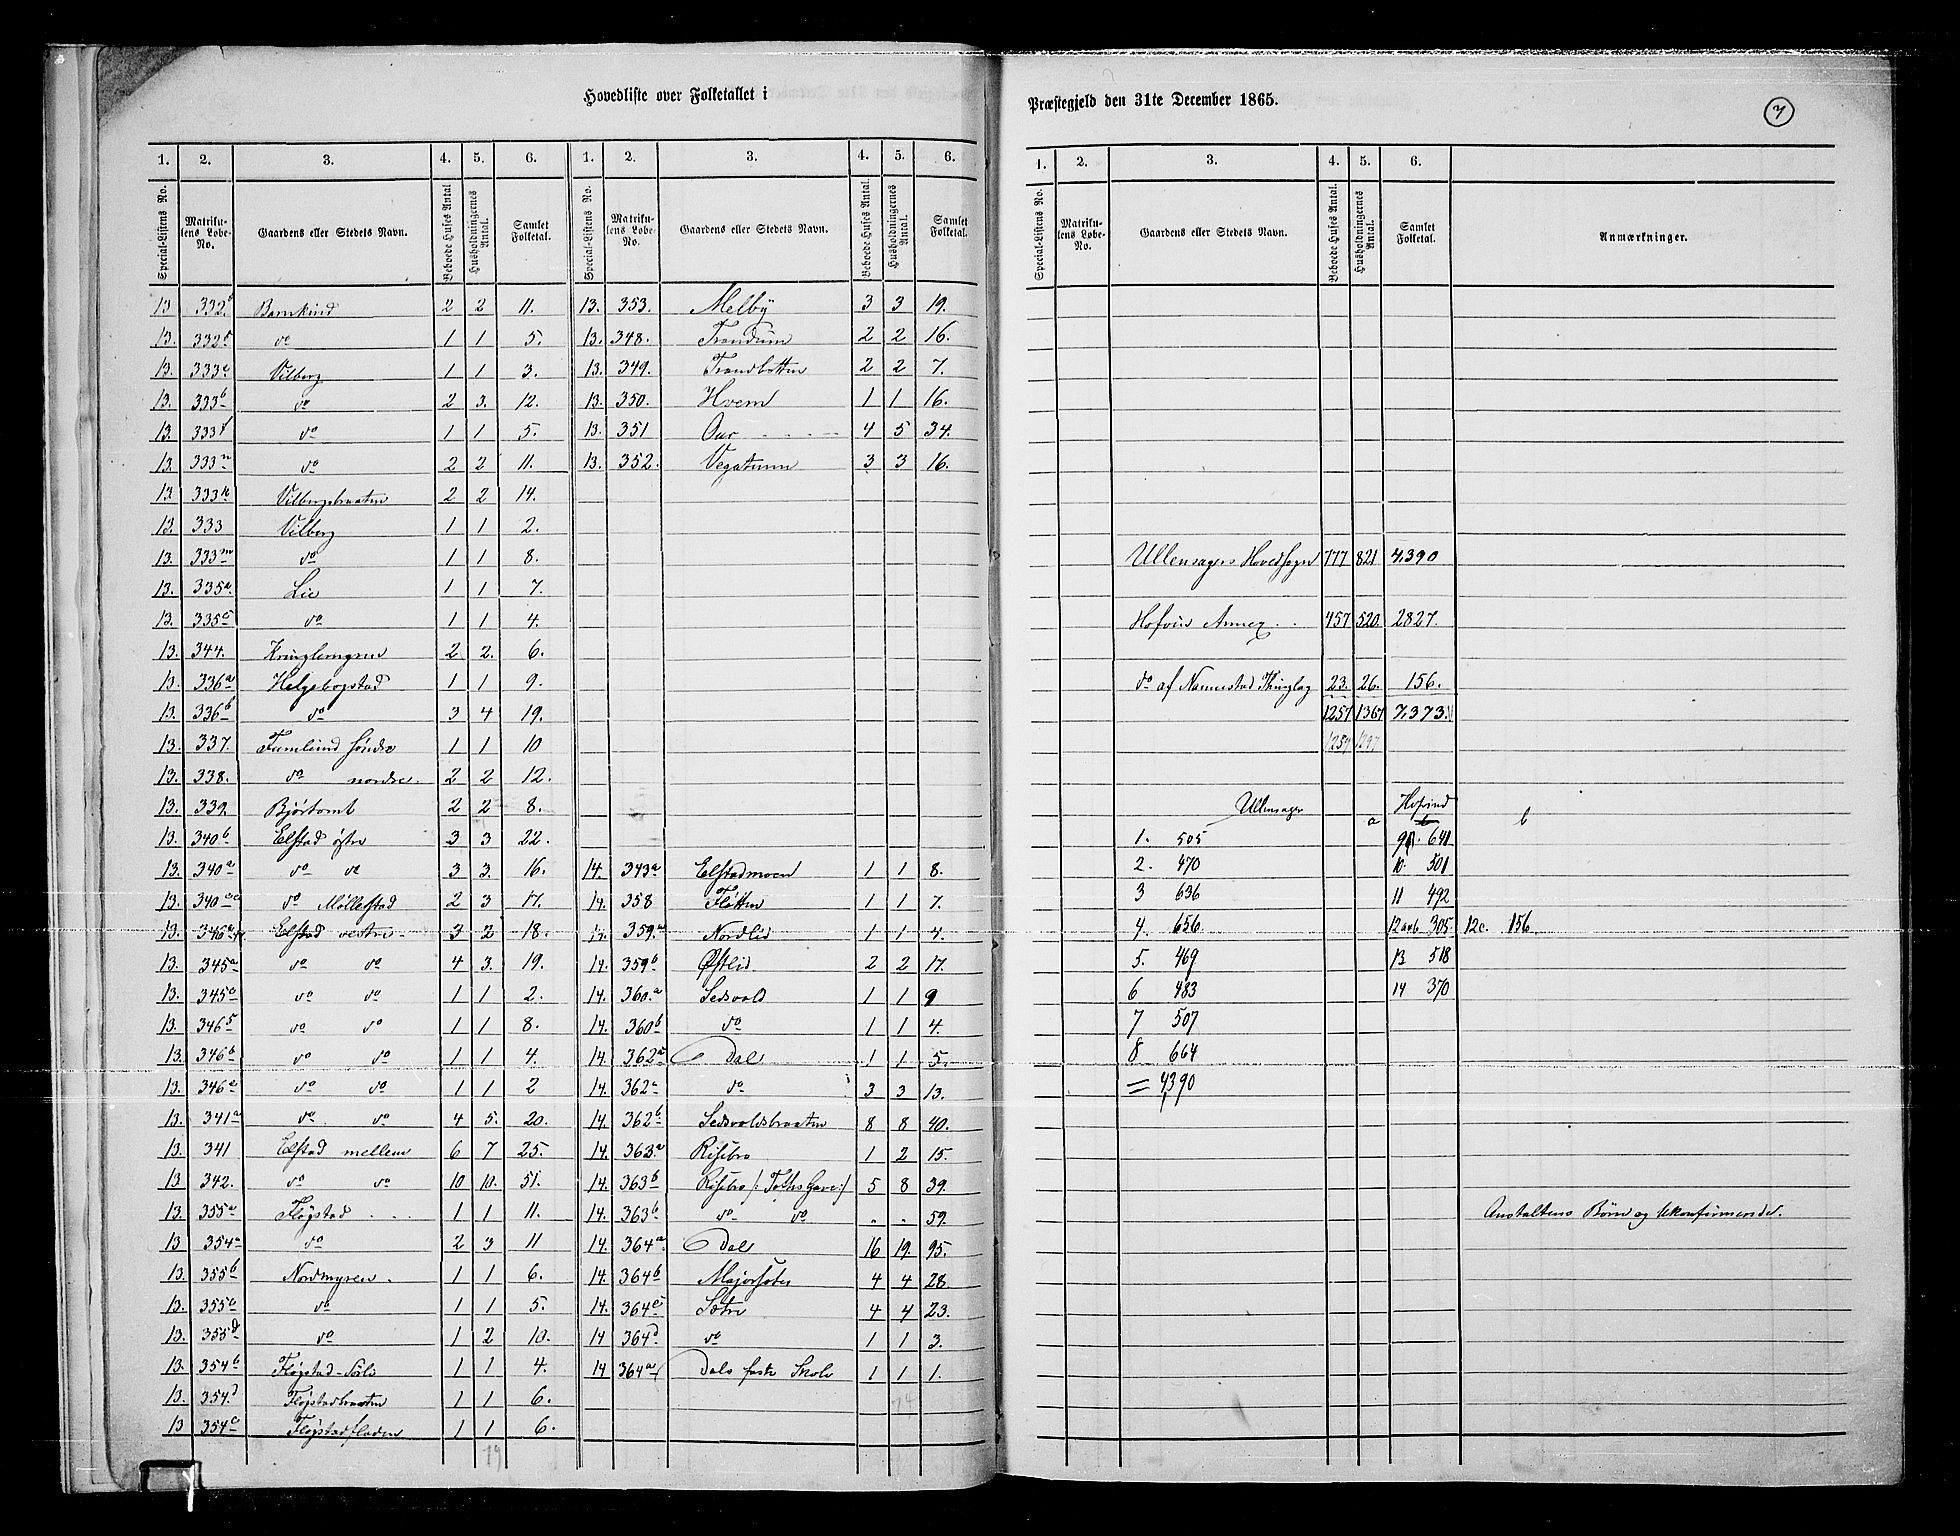 Hovedliste over Folketallet i
Præstegjeld den 31te December 1865.
7
1. 2. 3. 4. 5. 6. 1. 2. 3. 4. 5. 6.
Special-Listens No. Matrikulens Løbe-No. Gaardens eller Stedets Navn. Beboede Huses Antal Husholdningernes Antal. Samlet Folketal. Special-Listens No. Matrikulens Løbe-No. Gaardens eller Stedets Navn. Beboede Huses Antal. Husholdningernes Antal. Samlet Folketal.
13 332b Bamkind 2 2 11. 13. 353. Melby 3 3 19.
13. 332c do 1 1 5. 13. 348. Trandum 2 2 16.
13. 333a Vilberg 1 1 3. 13. 349. Trandbotten 2 2 7.
13. 333b do 2 3. 12. 13. 350. Hvem 1 1 16.
13. 333f do 1 1 5. 13. 351 Aur 4 5 34.
13. 333n do 2 2 11. 13. 352. Vegatrum 3 3 16.
13. 333k Vilbergsbraaten 2 2 14.
13. 333 Vilberg 1 1 2.
13. 333m do 1 1 8.
13. 335a. Lie 1 1 7.
13. 335c do 1 1 4.
13. 344. Kringlemyren 2 2. 6.
13. 336a Helgebogstad 1 1 9.
13. 336b do 3 4 19.
13. 337. Furulund søndre 1 1 10
13. 338. do nordre. 2 2 12.
13. 339. Bjørtomt 2 2 8.
13. 340b Elstad østre 3 3 22.
13. 340a do do 3 3. 16. 14. 343a Elstadmoen 1 1 8.
13. 340aa do Møllerstad 2 3 17. 14. 358 Fløtten 1 1 7.
13. 346a Elstad vestre. 3 2 18. 14. 359a Nordlid 1 1 4.
13. 345a do do 4 3. 19. 14. 359b Østlid 2 2 17.
13. 345c do do 1 1 2. 14. 360.a Sesvold 1 1 9
13. 346 do do 1 1 8. 14. 360b do 1 1 4.
13. 346b do do 1 1 4. 14. 362 Dal 1 1 5.
13. 346a do do 1 1 2 14. 362a do 3 3 13.
13. 341a do do 4 5. 20. 14. 362b Sesvoldsbraaten 8 8 40.
13. 341 Elstad mellem 6 7 25. 14. 363a Risebro 1 2 15.
13 342. do do 10 10. 51. 14. 363b Risebro /: Tofts Gave:/ 5 8 39.
13. 355a Fløgstad 1 1 11. 14. 363b do do " " 59.
13 354a do 2 3 11 14. 364a. Dal 16 19. 95.
13. 355b Nordmyren. 1 1 6. 14. 364b Majorsæter 4 4 28.
13. 355c do 1 1 5. 14. 364c Sætre 4 4 23.
13. 355d do 1 2 10. 14 364d do 1 1 3.
13. 354b Fløgstad-Søli 1 1 4. 14 364a Dals faste Skole 1 1 1.
13. 354d Fløgstadbraaten 1 1 6.
13 354c Fløgstadfladen 1 1 6.
1. 2. 3. 4. 5. 6.
Special-Listens No. Matrikulens Løbe-No. Gaardens eller Stedets Navn. Beboede Huses Antal. Husholdningernes Antal. Samlet Folketal. Anmærkninger.
Ullensagers Hovedsogn 777 821 4390
Hofvin Annex 457 520. 2827.
do af Nannestad Thinglag 23. 26. 156.
1257 1367 7,373.
1259 1297
Ullensager a Hofvind b
1. 505 9. 641
2. 470 10. 501
3 636 11 492
4. 656 12 a o b 305. 12c. 156
5. 469 13 518
6 483 14 370
7 507
8 664
= 4390
Anstaltens Børn og Ukonfirmerede.